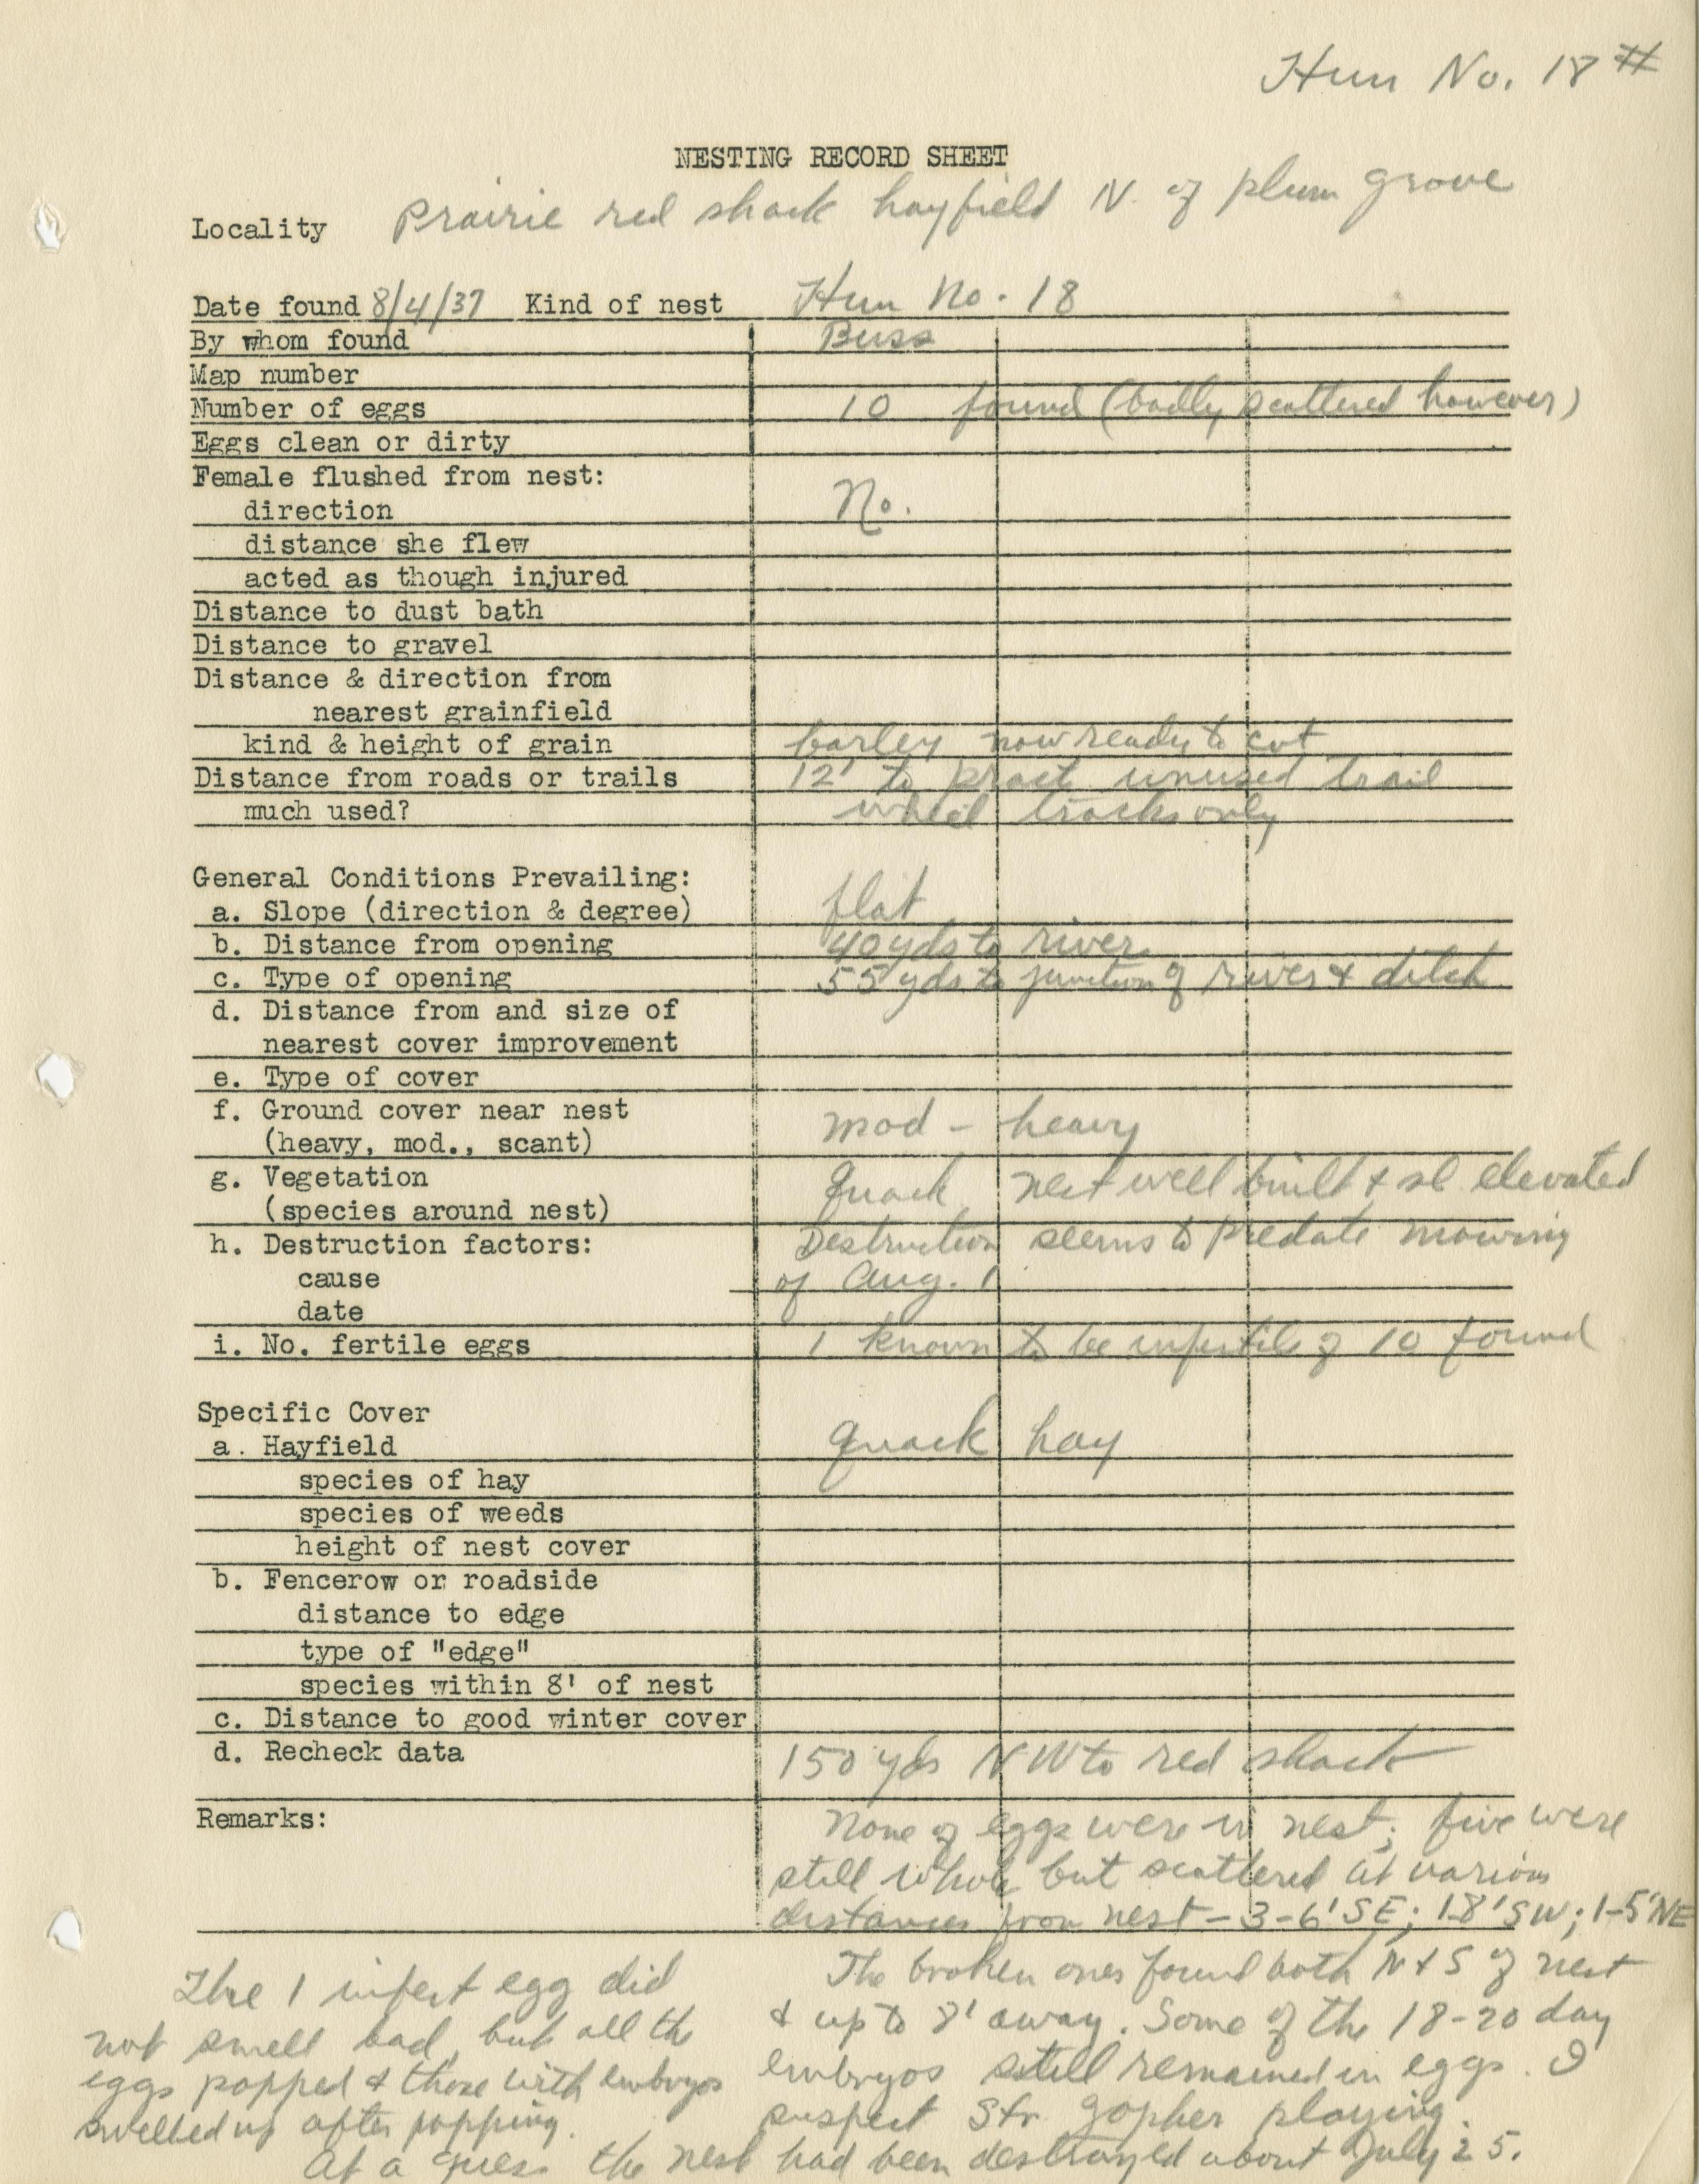 Hun No. 18 #
NESTING RECORD SHEET
Locality Prairie red shack hayfield N. of plum grove
Date found 8/4/37 Kind of nest Hun No. 18
By whom found Buss
Map number
Number of eggs 10 found (badly scattered however)
Eggs clean or dirty
Female flushed from nest:
direction No.
distance she flew
acted as though injured
Distance to dust bath
Distance to gravel
Distance & direction from
nearest grainfield
kind & height of grain barley now ready to cut
Distance from roads or trails 12' to pract unused trail
much used? wheel tracks only
General Conditions Prevailing:
a. Slope (direction & degree) flat
b. Distance from opening 40 yds to river
c. Type of opening 55 yds to junction of river & ditch
d. Distance from and size of
nearest cover improvement
e. Type of cover
f. Ground cover near nest
(heavy, mod., scant) mod - heavy
g. Vegetation quack nest well built & sl elevated
(species around nest)
h. Destruction factors: Destruction seems to predate mowing
cause of Aug. 1
date
i. No. fertile eggs 1 known to be infertile of 10 found
Specific Cover
a. Hayfield quack hay
species of hay
species of weeds
height of nest cover
b. Fencerow or roadside
distance to edge
type of "edge"
species within 8' of nest
c. Distance to good winter cover
d. Recheck data 150 yds NW to red shack
Remarks: None of eggs were in nest; five were
still whole but scattered at various
distances from nest - 3-6' SE; 1-8' SW; 1-5' NE
The broken ones found both N & S of nest
& up to 8' away. Some of the 18-20 day
embryos still remained in eggs. I
suspect Str. gopher playing.
The 1 infert egg did
not smell bad, but all the
eggs popped & those with embryos
swelled up after popping.
At a guess the nest had been destroyed about July 25.